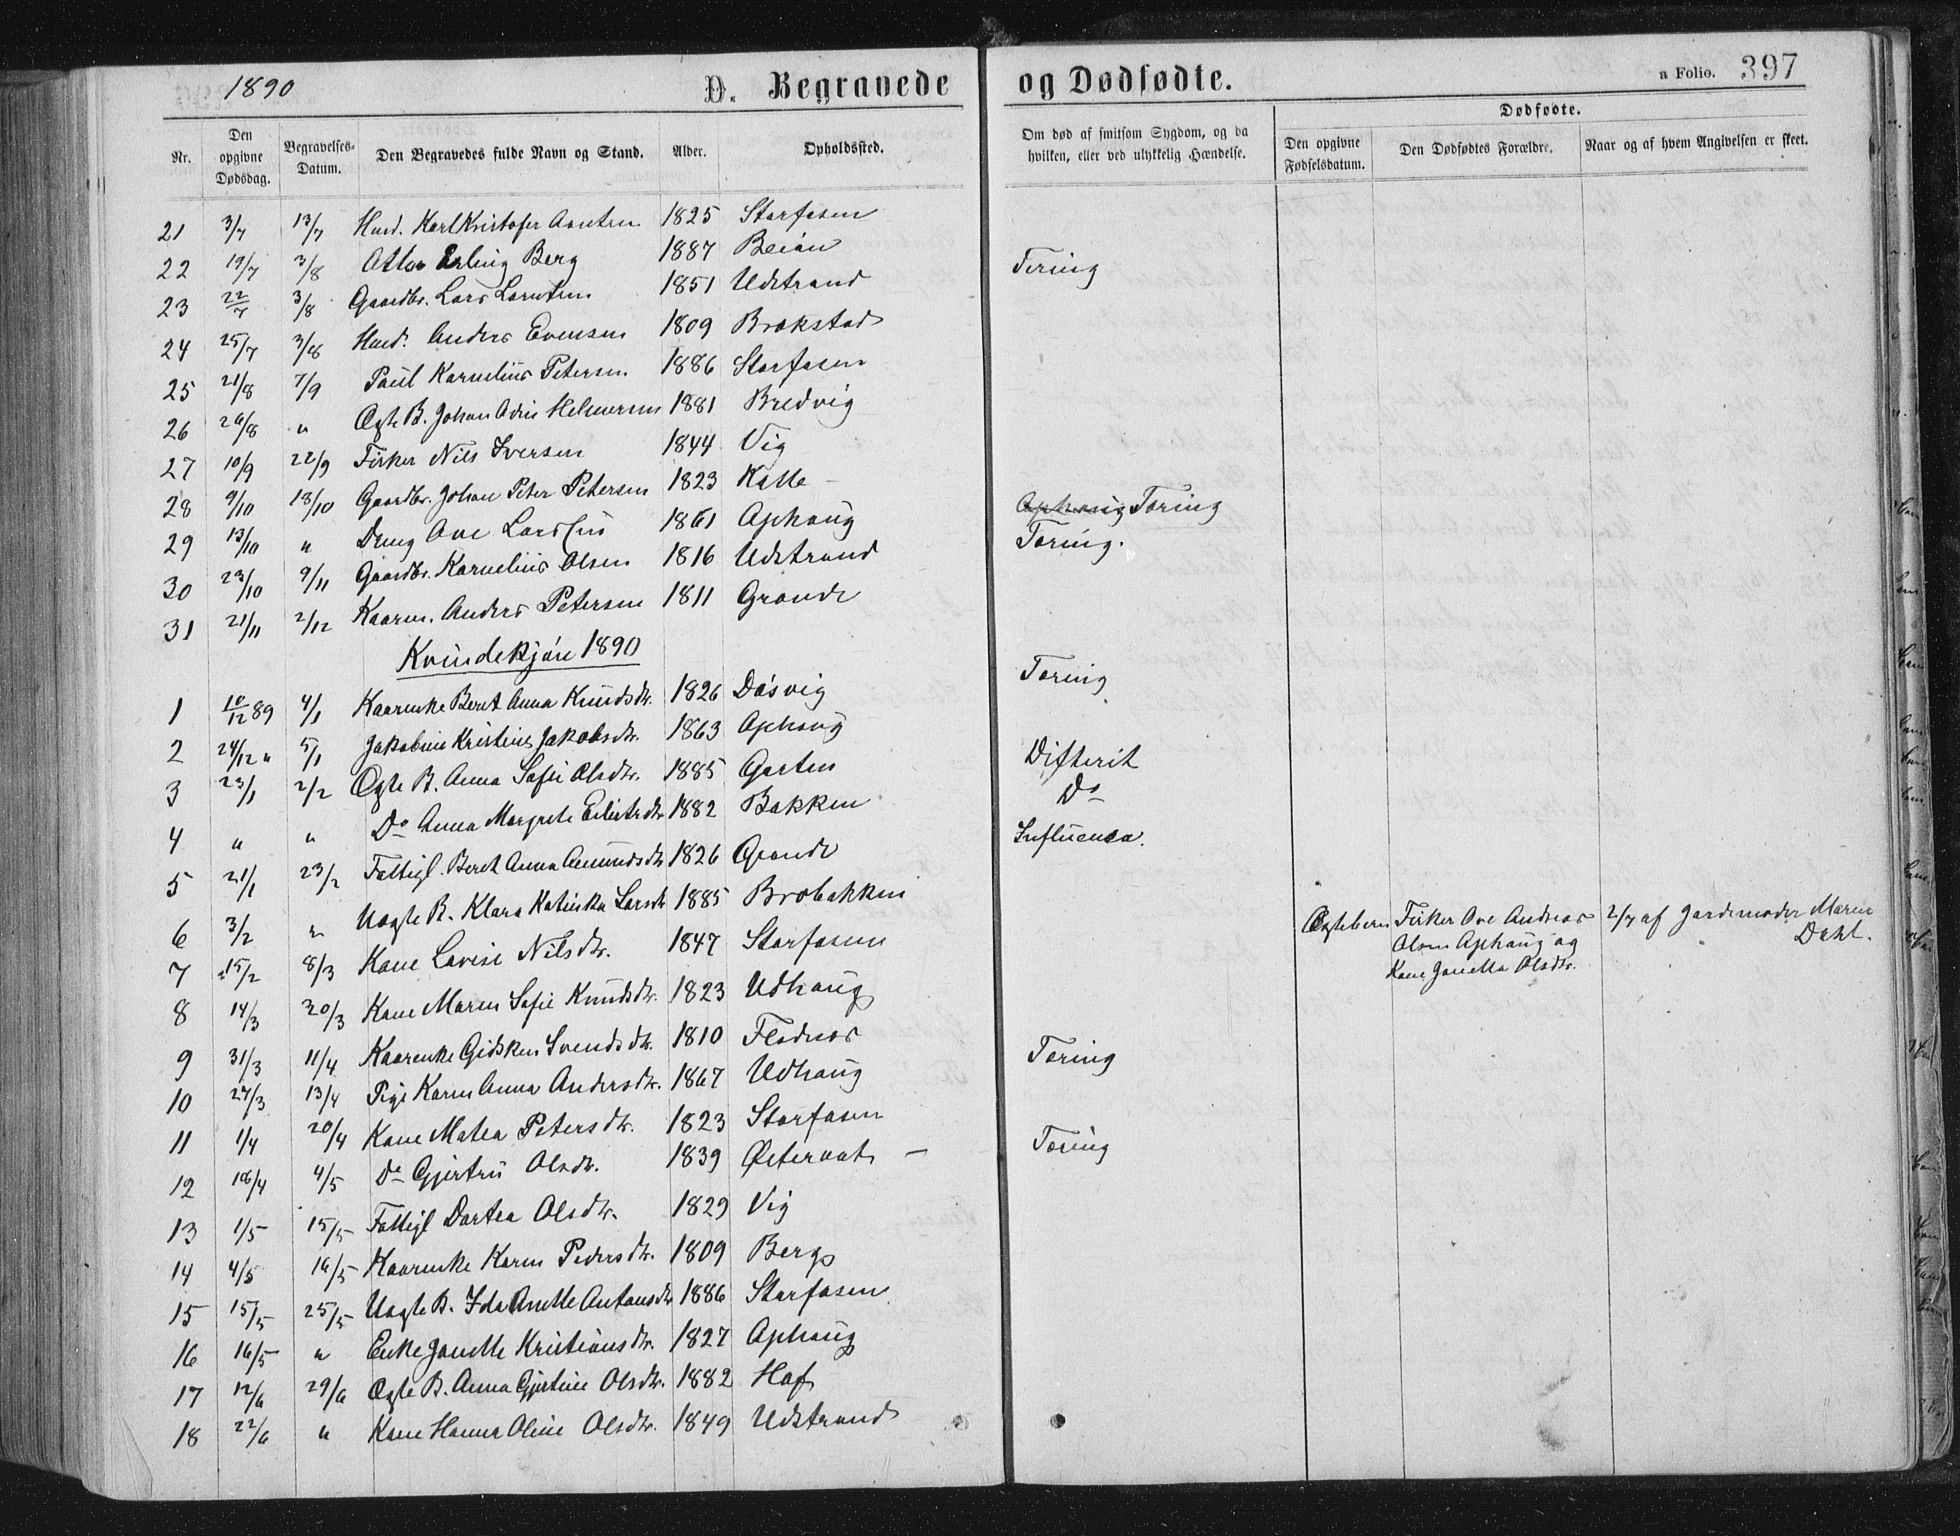 1890
D. Begravede og Dødfødte.
a Folio. 397
Nr.
Den opgivne Dødsdag.
Begravelses-Datum.
Den Begravedes fulde Navn og Stand.
Alder.
Opholdssted.
Om død af smitsom Sygdom, og da hvilken, eller ved ulykkelig Hændelse.
Dødfødte.
Den opgivne Fødselsdatum.
Den Dødfødtes Forældre.
Naar og af hvem Angivelsen er skeet.
21 3/7 13/7 Huusm. Karl Kristofer 1825 Storfosen
22 19/7 3/8 Otto Erling Berg 1887 Beian Tæring
23 22/7 3/8 Gaardbr. Lars Larntsen 1851 Udstrand
24 25/7 3/8 Anders Evensen 1809 Brækstad
25 21/8 7/9 Paul Kornelius Petersen 1886 Storfosen
26 26/8 " Ægte B. Johan Helmersen 1881 Bredvig
27 10/9 22/9 Fisker Nils Iversen 1844 Vig
28 9/10 18/10 Gaardbr. Johan Peter Petersen 1823 Kotte - Ophaug Tæring
29 13/10 " Dreng Ove Larssen 1861 Ophaug Tæring.
30 23/10 9/11 Gaardbr. Kornelius Olsen 1816 Udstrand
31 21/11 2/12 Kaarm. Anders Petersen 1811 Grande
Kvindekjøn 1890
1 10/12 89 4/1 Kaarenke Beret Anna Knudsdtr. 1826 Døsvig Tæring
2 24/12 " 5/1 Jakobine Kristine Jakobsdtr. 1863 Ophaug
3 23/1 2/2 Ægte B. Anna Sofie Olsdtr. 1885 Garten Difterit
4 " " Do Anna Margrete Eilertsdtr 1882 Bakken Do
5 21/1 23/2 Fattigl. Beret Anna Amundsdtr 1826 Grande Influenca.
6 3/2 " Uægte B. Klara Katinka Larsdtr 1885 Brobakken
Ægtebarn Fisker Ove Andreas 2/7 af Jordemoder Maren
Olsen Ophaug og Dahl.
Kone Janetta Olsdtr.
7 15/2 8/3 Kone Lovise Nilsdtr. 1847 Storfosen
8 14/3 30/3 Kone Maren Sofie Knudsdtr. 1823 Udhaug
9 31/3 11/4 Kaarenke Gidsken Svendsdtr. 1810 Flodnes Tæring
10 27/3 13/4 Pige Karen Anna Andersdtr. 1867 Udhaug
11 1/4 20/4 Kone Matea Petersdtr. 1823 Storfosen
12 16/4 4/5 Do Gjertru Olsdtr. 1839 Østeraat - Tæring
13 1/5 15/5 Fattigl Dortea Olsdtr. 1829 Vig
14 4/5 16/5 Kaarenke Karen Pedersdtr. 1809 Berg
15 15/5 25/5 Uægte B. Ida Anette Antonsdtr 1886 Storfosen
16 16/5 " Enke Janette Kristiansdtr. 1827 Ophaug
17 12/6 29/6 Ægte B. Anna Gjertine Olsdtr. 1882 Hof
18 22/6 " Kone Hanna Oline Olsdtr. 1849 Udstrand